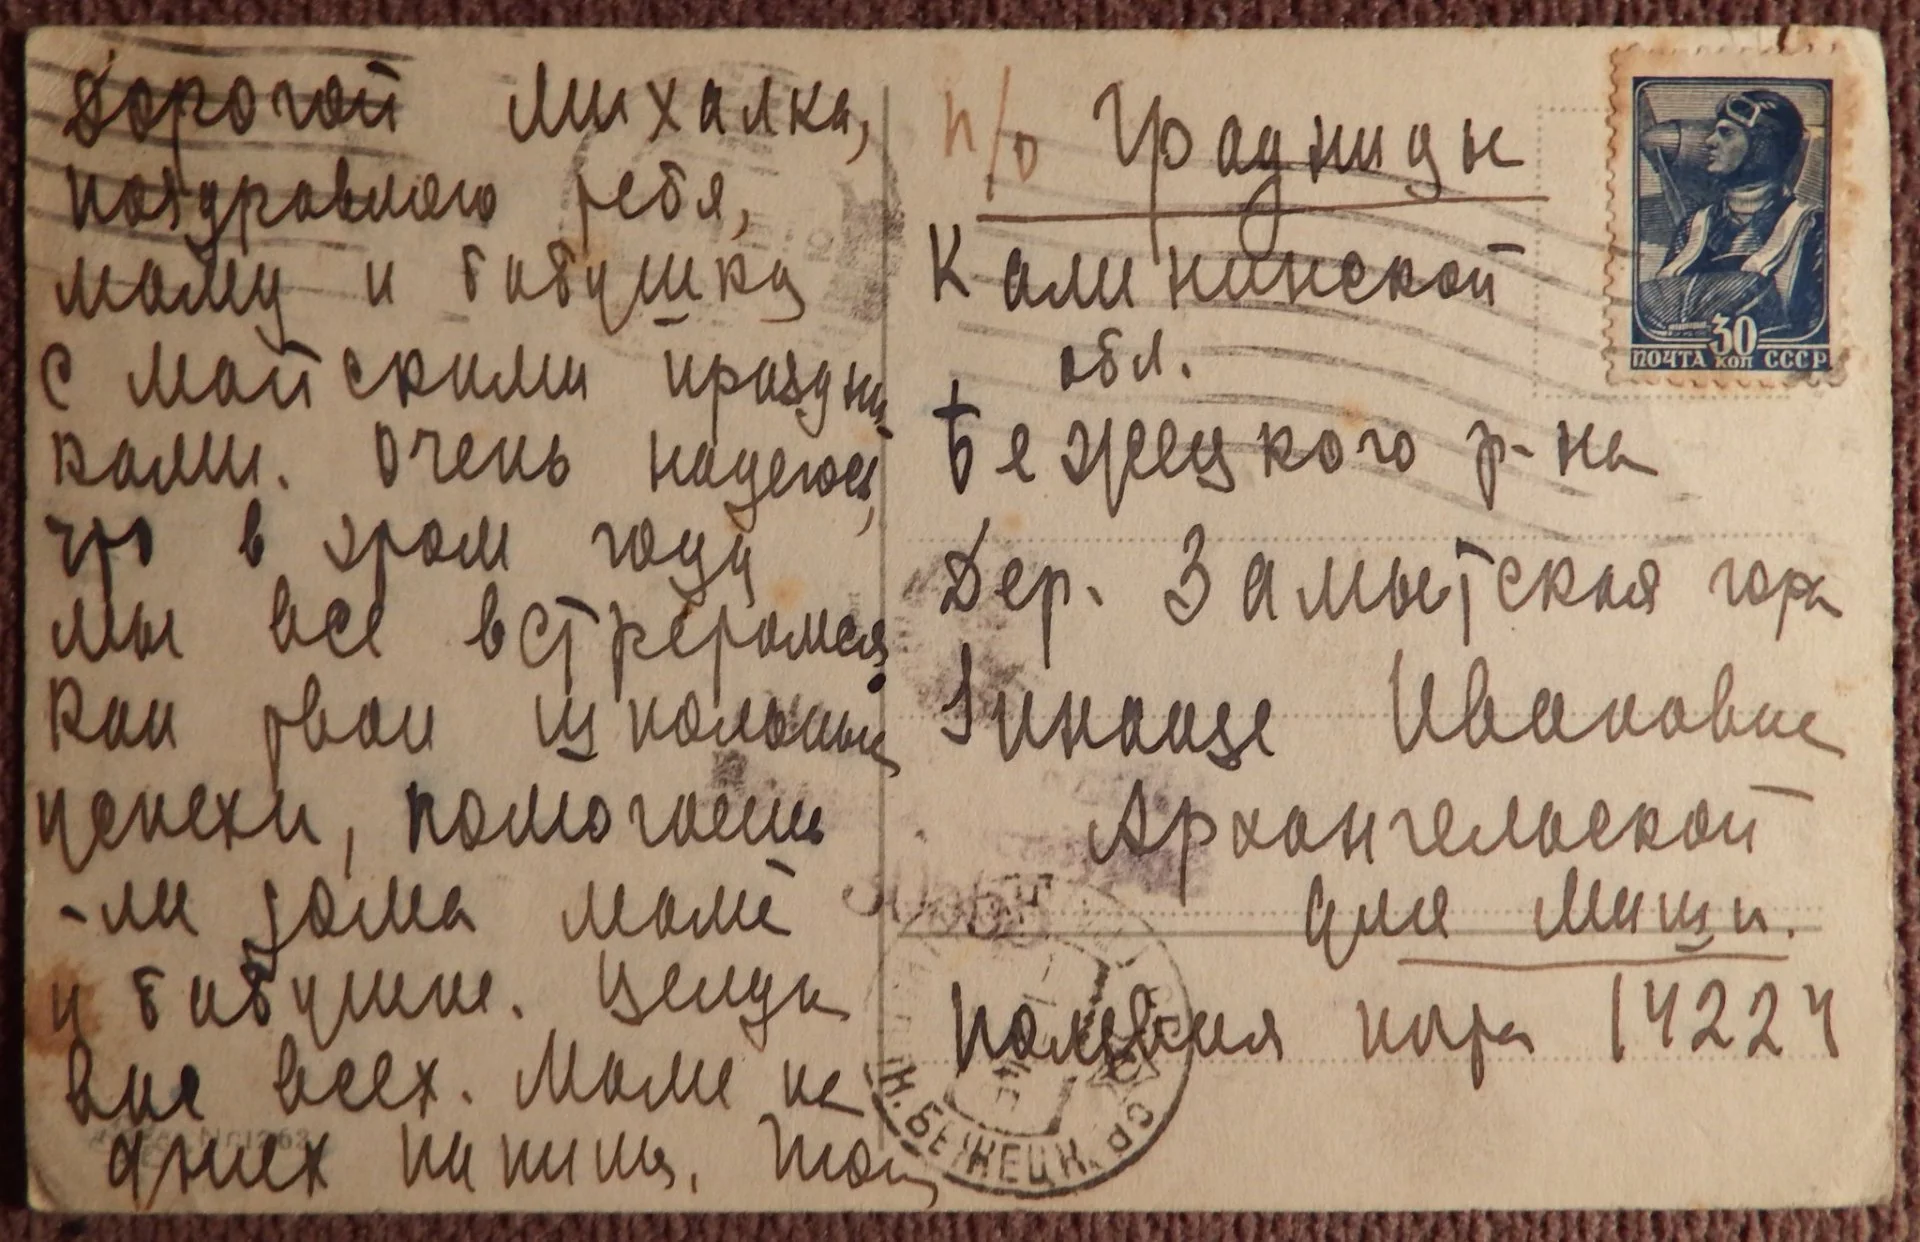 Дорогой Михалка,
поздравляю тебя,
маму и бабушку
с майскими праздни
ками. Очень надеюсь,
что в этом году
мы все встретимся
как твои школьные
успехи, помогаешь
-ли дома маме
и бабушке. Целую
вас всех. Маме на
днях напишу. Твой
п/о Градницы
Калининской
обл.
Бежецкого р-на
Дер. Замытская гора
Зинаиде Ивановне
Архангельской
для Миши.
Полевая почта 14224
30
ПОЧТА КОП СССР
Н. БЕЖЕЦК